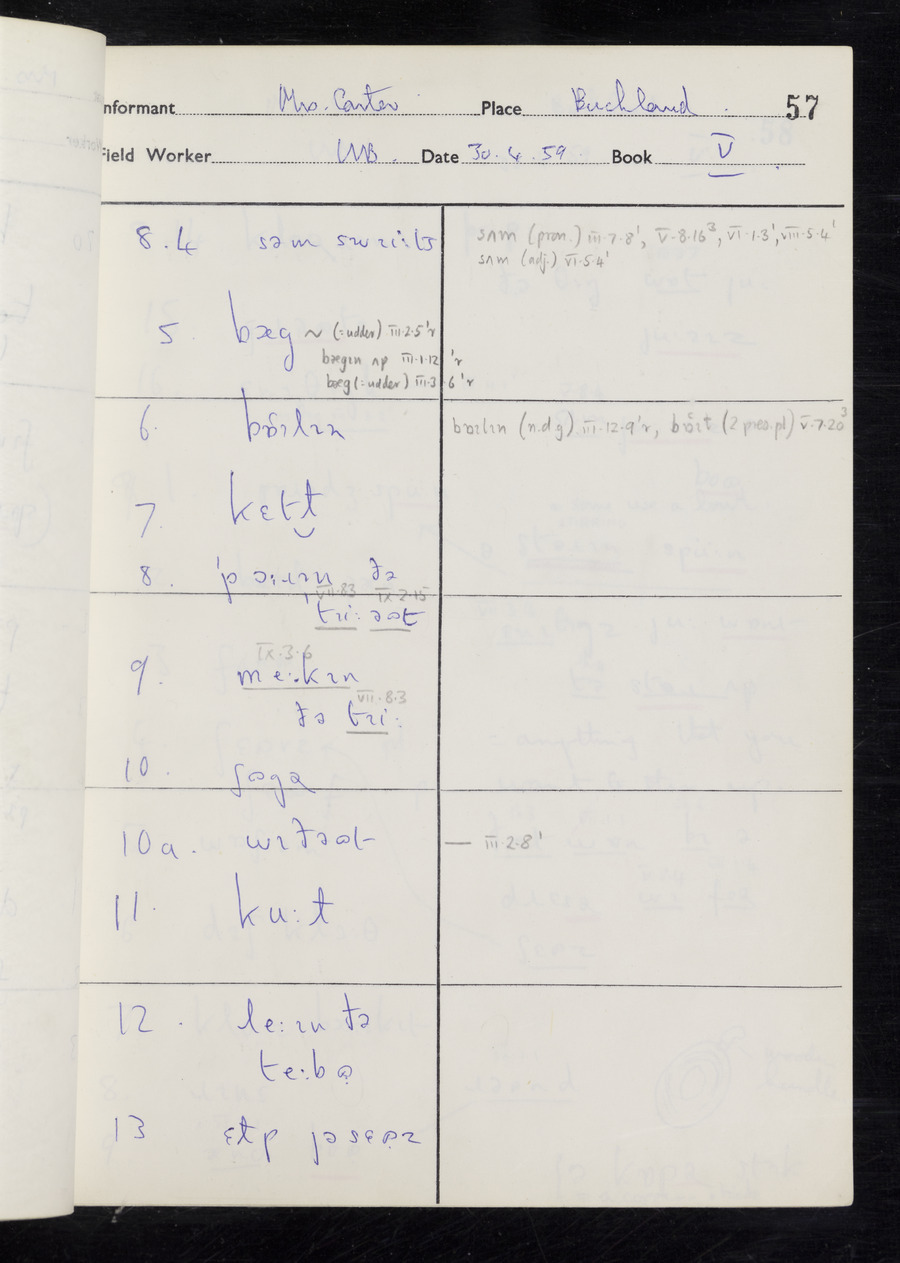 Informant Mrs. Carter Place Buckland. 57
Field Worker WB. Date 30.4.59 Book V
8.4 səm swiːts
sʌm (pron.) III·7·8', V·8·16³, VI·1·3', VIII·5·4'
sʌm (adj.) VI·5·4'
5. bæg ~ (=udder) III·2·5'r
bægɪn np III·1·12'r
bæg (=udder) III·3·6'r
6. bɔɪlɪn
bɔɪlɪn (n.d g) III·12·9'r, bɔɪɫ (2 pres.pl) V·7·20³
7. kɛtɫ
8. ðə
VII·8·3 IX·2·15
9. IX·3·6
meːkɪn
VII·8·3
ðə tɹiː
10. ʃəgə
10a. wɪðəʊt
— III·2·8'
11. kuːɫ
12. leːɪn ðə
teːbə
13 ɛɫp